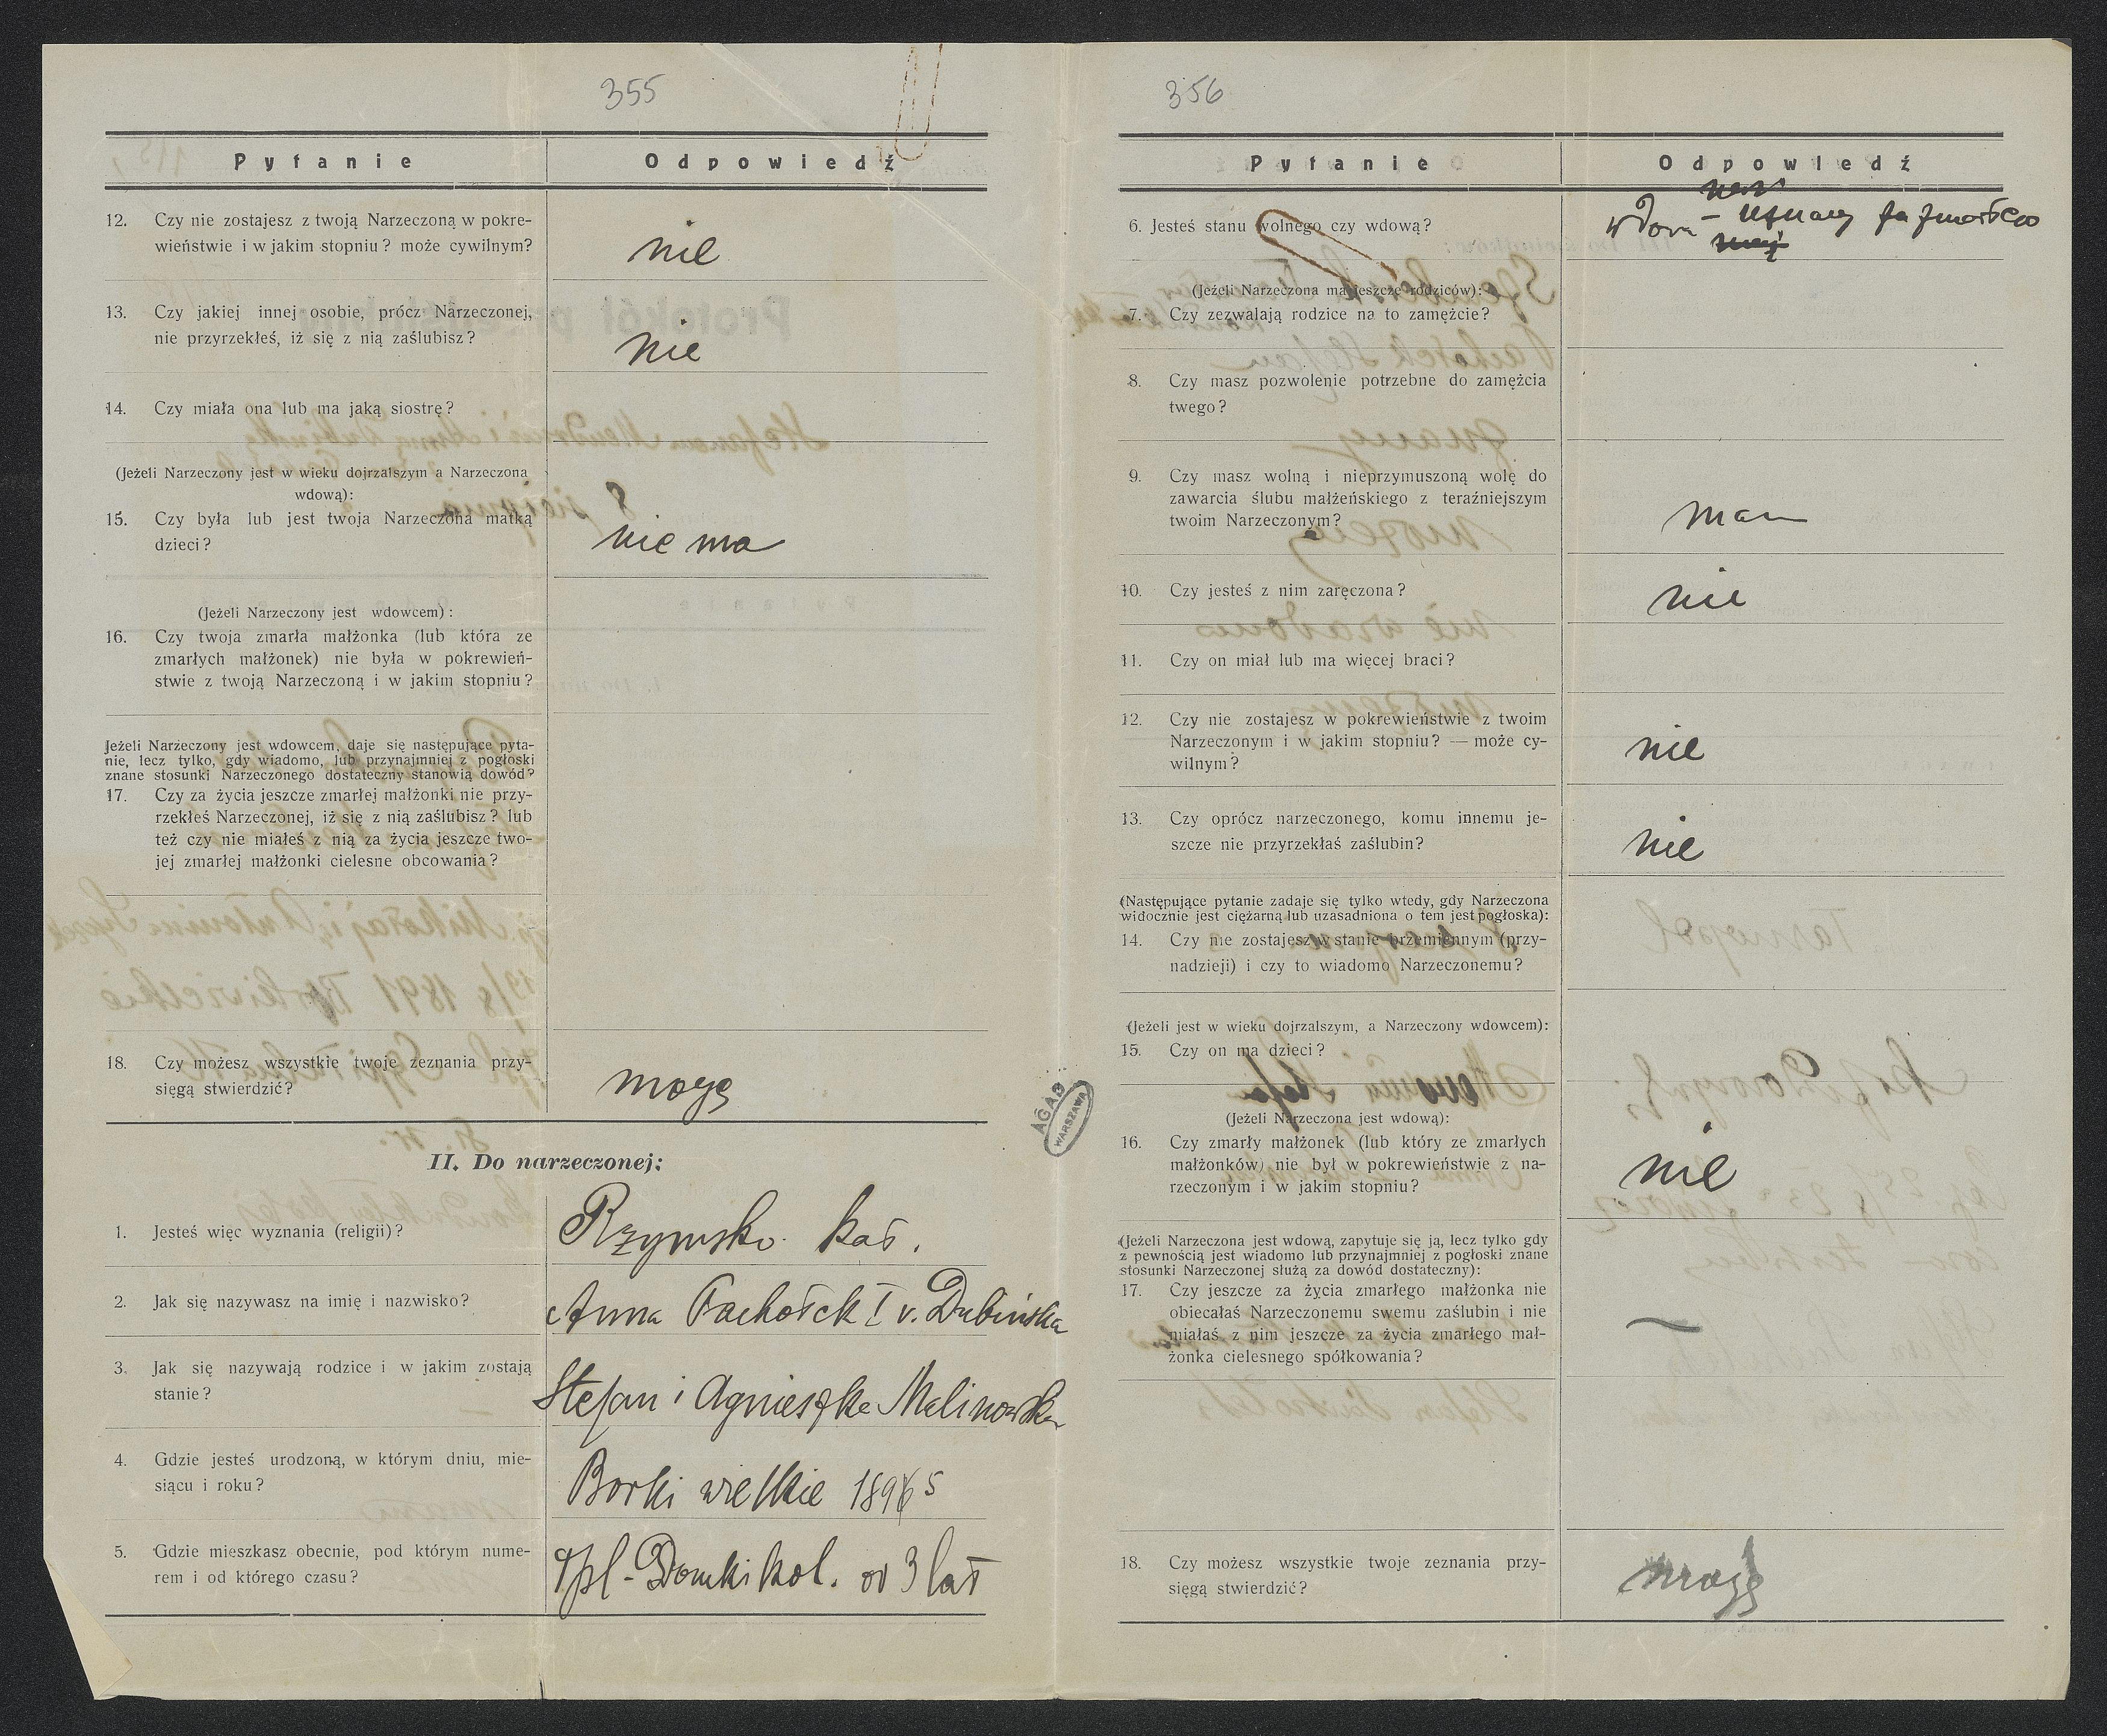 355
Pytanie Odpowiedź
12. Czy nie zostajesz z twoją Narzeczoną w pokre-
wieństwie i w jakim stopniu? może cywilnym?
nie
13. Czy jakiej innej osobie, prócz Narzeczonej,
nie przyrzekłeś, iż się z nią zaślubisz?
nie
14. Czy miała ona lub ma jaką siostrę?
(Jeżeli Narzeczony jest w wieku dojrzalszym a Narzeczona
wdową):
15. Czy była lub jest twoja Narzeczona matką
dzieci?
nie ma
(Jeżeli Narzeczony jest wdowcem):
16. Czy twoja zmarła małżonka (lub która ze
zmarłych małżonek) nie była w pokrewień-
stwie z twoją Narzeczoną i w jakim stopniu?
Jeżeli Narzeczony jest wdowcem, daje się następujące pyta-
nie, lecz tylko, gdy wiadomo, lub przynajmniej z pogłoski
znane stosunki Narzeczonego dostateczny stanowią dowód?
17. Czy za życia jeszcze zmarłej małżonki nie przy-
rzekłeś Narzeczonej, iż się z nią zaślubisz? lub
też czy nie miałeś z nią za życia jeszcze two-
jej zmarłej małżonki cielesne obcowania?
18. Czy możesz wszystkie twoje zeznania przy-
sięgą stwierdzić?
mogę
II. Do narzeczonej:
1. Jesteś więc wyznania (religii)?
Rzymsko. kat.
2. Jak się nazywasz na imię i nazwisko?
Anna Pachołek I v. Dubińska
3. Jak się nazywają rodzice i w jakim zostają
stanie?
Stefan i Agnieszka Malinowska
4. Gdzie jesteś urodzoną, w którym dniu, mie-
siącu i roku?
Borki wielkie 1895
5. Gdzie mieszkasz obecnie, pod którym nume-
rem i od którego czasu?
Tpl-Domki kol. od 3 lat
AGAD
WARSZAWA
356
Pytanie Odpowiedź
6. Jesteś stanu wolnego czy wdową?
wdowa – uznany za zmarłego
(Jeżeli Narzeczona ma jeszcze rodziców):
7. Czy zezwalają rodzice na to zamężcie?
8. Czy masz pozwolenie potrzebne do zamężcia
twego?
9. Czy masz wolną i nieprzymuszoną wolę do
zawarcia ślubu małżeńskiego z teraźniejszym
twoim Narzeczonym?
mam
10. Czy jesteś z nim zaręczona?
nie
11. Czy on miał lub ma więcej braci?
12. Czy nie zostajesz w pokrewieństwie z twoim
Narzeczonym i w jakim stopniu? — może cy-
wilnym?
nie
13. Czy oprócz narzeczonego, komu innemu je-
szcze nie przyrzekłaś zaślubin?
nie
(Następujące pytanie zadaje się tylko wtedy, gdy Narzeczona
widocznie jest ciężarną lub uzasadniona o tem jest pogłoska):
14. Czy nie zostajesz w stanie przemiennym (przy-
nadzieji) i czy to wiadomo Narzeczonemu?
(Jeżeli jest w wieku dojrzalszym, a Narzeczony wdowcem):
15. Czy on ma dzieci?
(Jeżeli Narzeczona jest wdową):
16. Czy zmarły małżonek (lub który ze zmarłych
małżonków) nie był w pokrewieństwie z na-
rzeczonym i w jakim stopniu?
nie
(Jeżeli Narzeczona jest wdową, zapytuje się ją, lecz tylko gdy
z pewnością jest wiadomo lub przynajmniej z pogłoski znane
stosunki Narzeczonej służą za dowód dostateczny):
17. Czy jeszcze za życia zmarłego małżonka nie
obiecałaś Narzeczonemu swemu zaślubin i nie
miałaś z nim jeszcze za życia zmarłego mał-
żonka cielesnego spółkowania?
—
18. Czy możesz wszystkie twoje zeznania przy-
sięgą stwierdzić?
mogę